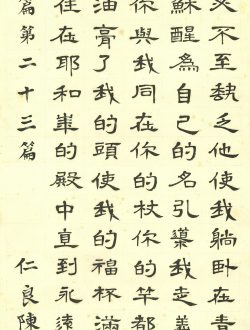 必不至缺乏他使我躺臥在青
蘇醒為自己的名引導我走義
你與我同在你的杖你的竿都
油膏了我的頭使我的福杯滿
住在耶和華的殿中直到永遠
篇第二十三篇 仁良陳